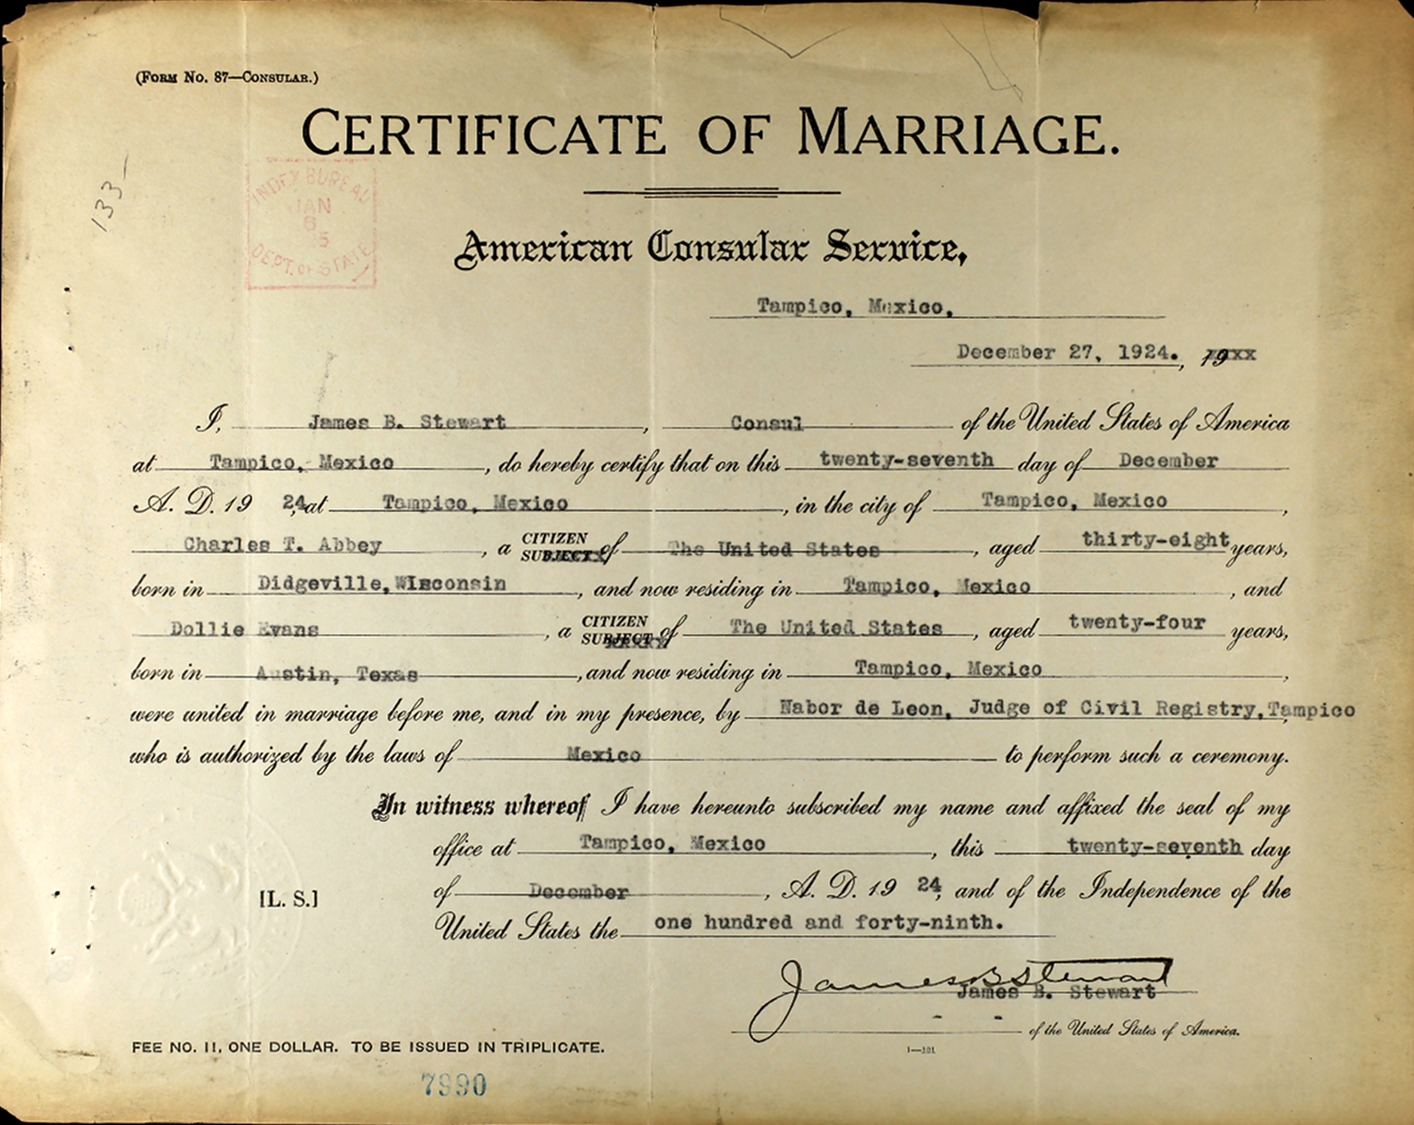 (FORM NO. 87—CONSULAR.)
CERTIFICATE OF MARRIAGE.
133-
INDEX BUREAU
JAN
6
DEPT. OF STATE
American Consular Service,
Tampico, Mexico,
December 27, 1924. , 19xx
I, James B. Stewart , Consul of the United States of America
at Tampico, Mexico , do hereby certify that on this twenty-seventh day of December
A. D. 19 24, at Tampico, Mexico , in the city of Tampico, Mexico ,
Charles T. Abbey , a CITIZEN SUBJECT of The United States , aged thirty-eight years,
born in Didgeville, WIsconsin , and now residing in Tampico, Mexico , and
Dollie Evans , a CITIZEN SUBJECT of The United States , aged twenty-four years,
born in Austin, Texas , and now residing in Tampico, Mexico ,
were united in marriage before me, and in my presence, by Nabor de Leon, Judge of Civil Registry, Tampico
who is authorized by the laws of Mexico to perform such a ceremony.
In witness whereof I have hereunto subscribed my name and affixed the seal of my
office at Tampico, Mexico , this twenty-seventh day
of December , A. D. 19 24, and of the Independence of the
[L. S.]
United States the one hundred and forty-ninth.
James B Stewart
James B. Stewart
of the United States of America.
FEE NO. 11, ONE DOLLAR. TO BE ISSUED IN TRIPLICATE.
1—101
7990